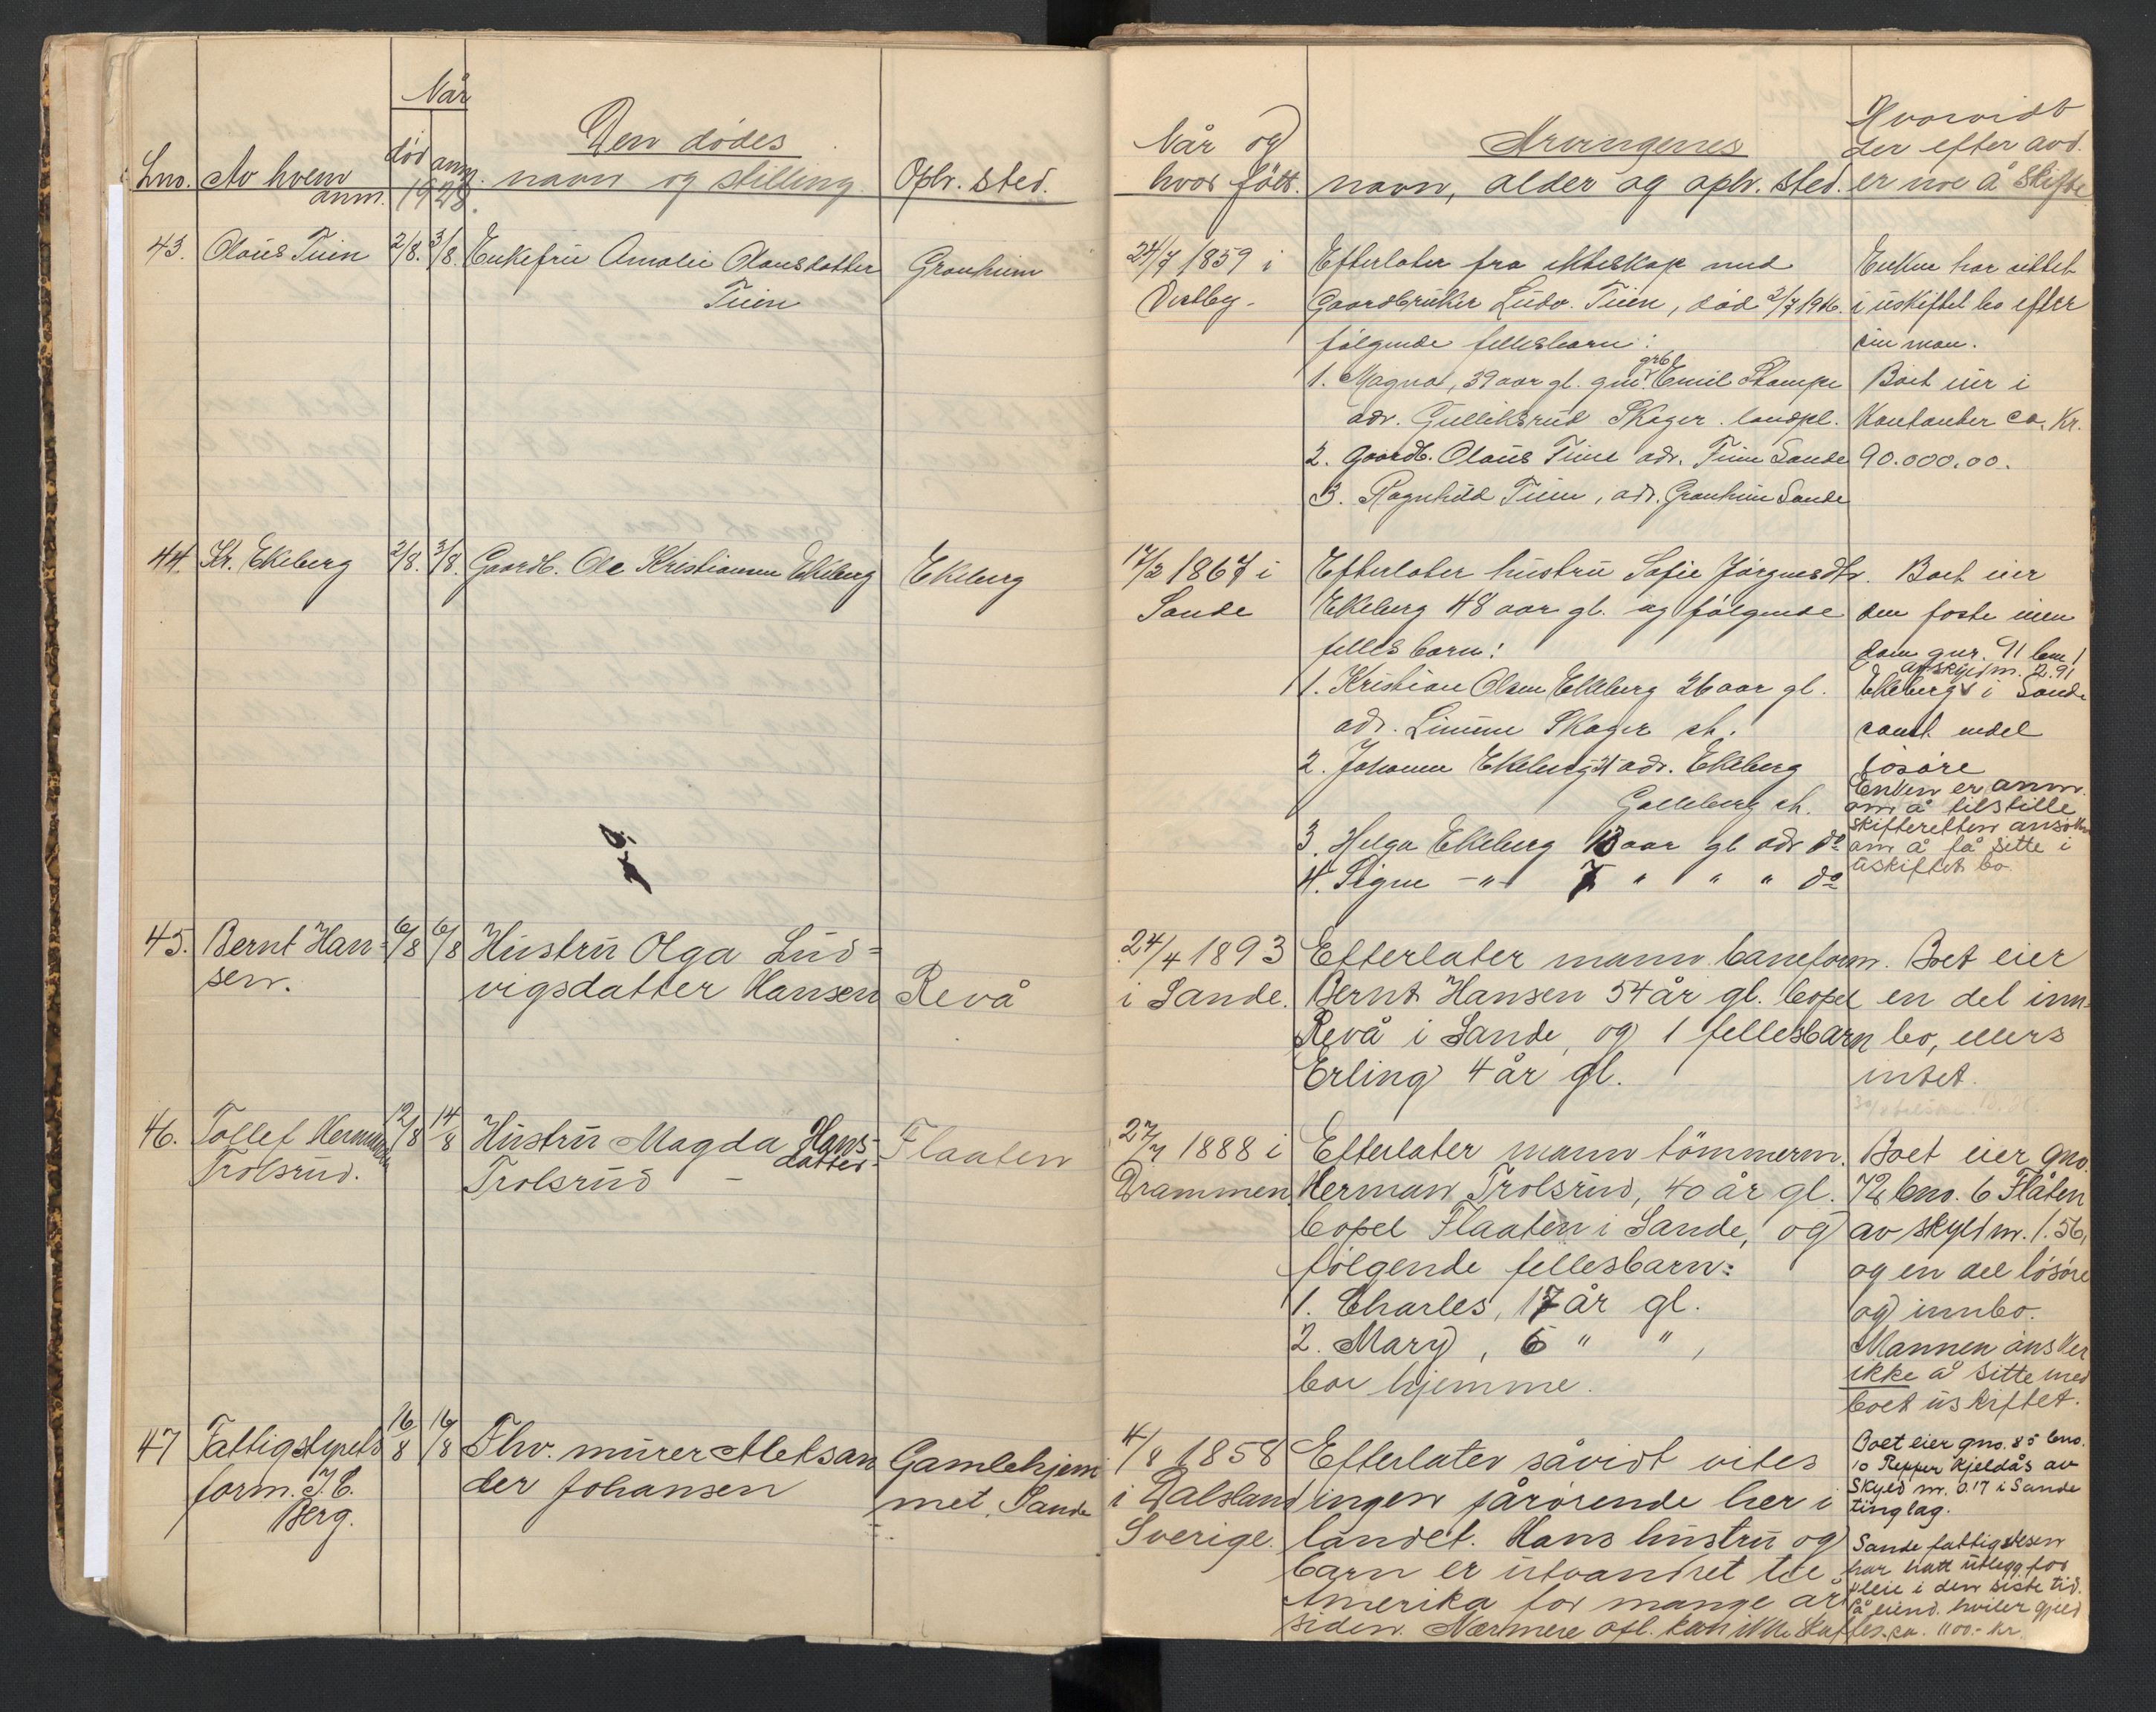 Når
død anm.
1928.
Lno. Av hvem anm.
Den dødes
navn og stilling
Oph. sted.
Når og
hvor født.
Arvingenes
navn, alder og oph. sted.
Hvorvidt
der efter avd.
er noe å skifte
43. Olaus Tuen 2/8. 3/8. Enkefru Amalie Olausdatter
Tuen
Granheim
24/7 1859 i
Vestby.
Efterlater fra ekteskap med
Gaardbruker Ludv. Tuen, død 2/7 1916.
følgende fellesbarn:
1. Magna, 39 aar gl. gm. grb. Emil Stampe
adr. Gulliksrud Skoger landspl.
2. Gaardb. Olaus Tuen adr. Tuen Sande
3. Ragnhild Tuen, adr. Granheim Sande
Enken har sittet
i uskiftet bo efter
sin man.
Boet eier i
Kontanter ca. Kr.
90.000.00.
44. Kr. Ekeberg 2/8. 3/8. Gaardb. Ole Kristiansen Ekeberg
Ekeberg
17/2 1867 i
Sande
Efterlater hustru Sofie Jørgensdtr.
Ekeberg 48 aar gl. og følgende
felles barn:
1. Kristian Olsen Ekeberg 26 aar gl.
adr. Skoger st.
2. Johanne Ekeberg 21 adr. Ekeberg
Galleberg st.
3. Helga Ekeberg 13 aar gl adr do
4. Signe -"- 7 " " " do
Boet eier
den faste eien
dom gnr. 91 bnr 1
av skyld m. 2.91
Ekeberg i Sande
samt endel
løsøre
Enken er anm.
om å tilstille
skifteretten ansøkn
om å få sitte i
uskiftet bo.
7 9.
45. Bernt Han=
sen.
6/8 6/8
Hustru Olga Lud=
vigsdatter Hansen
Revå
24/4 1893
i Sande.
Efterlater mann baneform.
Bernt Hansen 54 år gl. bopel
Revå i Sande, og 1 fellesbarn
Erling 4 år gl.
Boet eier
en del inn-
bo, ellers
intet.
46. Tollef Hermansen
Trolsrud.
12/8 14/8
Hustru Magda Hans-
datter-
Trolsrud -
Flaaten
27/7 1888 i
Drammen
Efterlater mann tømmerm.
Herman Trolsrud, 40 år gl.
bopel Flaaten i Sande, og
følgende fellesbarn:
1. Charles, 17 år gl.
2. Mary, 6 " ",
bor hjemme.
Boet eier gno.
72 bno. 6 Flåten
av skyld m. 1.56,
og en del løsøre
og innbo.
Mannen ønsker
ikke å sitte med
boet uskiftet.
47 Fattigstyrets
form. J. E.
Berg.
16/8 16/8
Fhv. murer Aleksan
der Johansen
Gamlehjem
met, Sande
4/8 1858
i Dalsland
Sverige.
Efterlater såvidt vites
ingen pårørende her i
landet. Hans hustru og
barn er utvandret til
Amerika for mange år
siden. Nærmere opl. kan ikke skaffes.
Boet eier gno. 85 bno.
10 Repper Kjeldås av
Skyld m. 0.17 i Sande
tinglag.
Sande fattigvesen
har hatt utlegg for
pleie i den siste tid.
På eiend. hviler gjeld
ca. 1100.- kr.